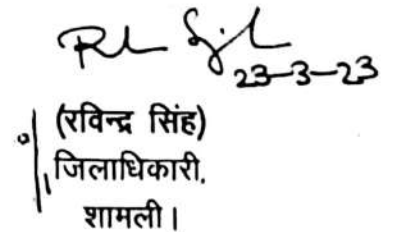 23-3-23
(रविन्द्र सिंह)
जिलाधिकारी,
शामली।